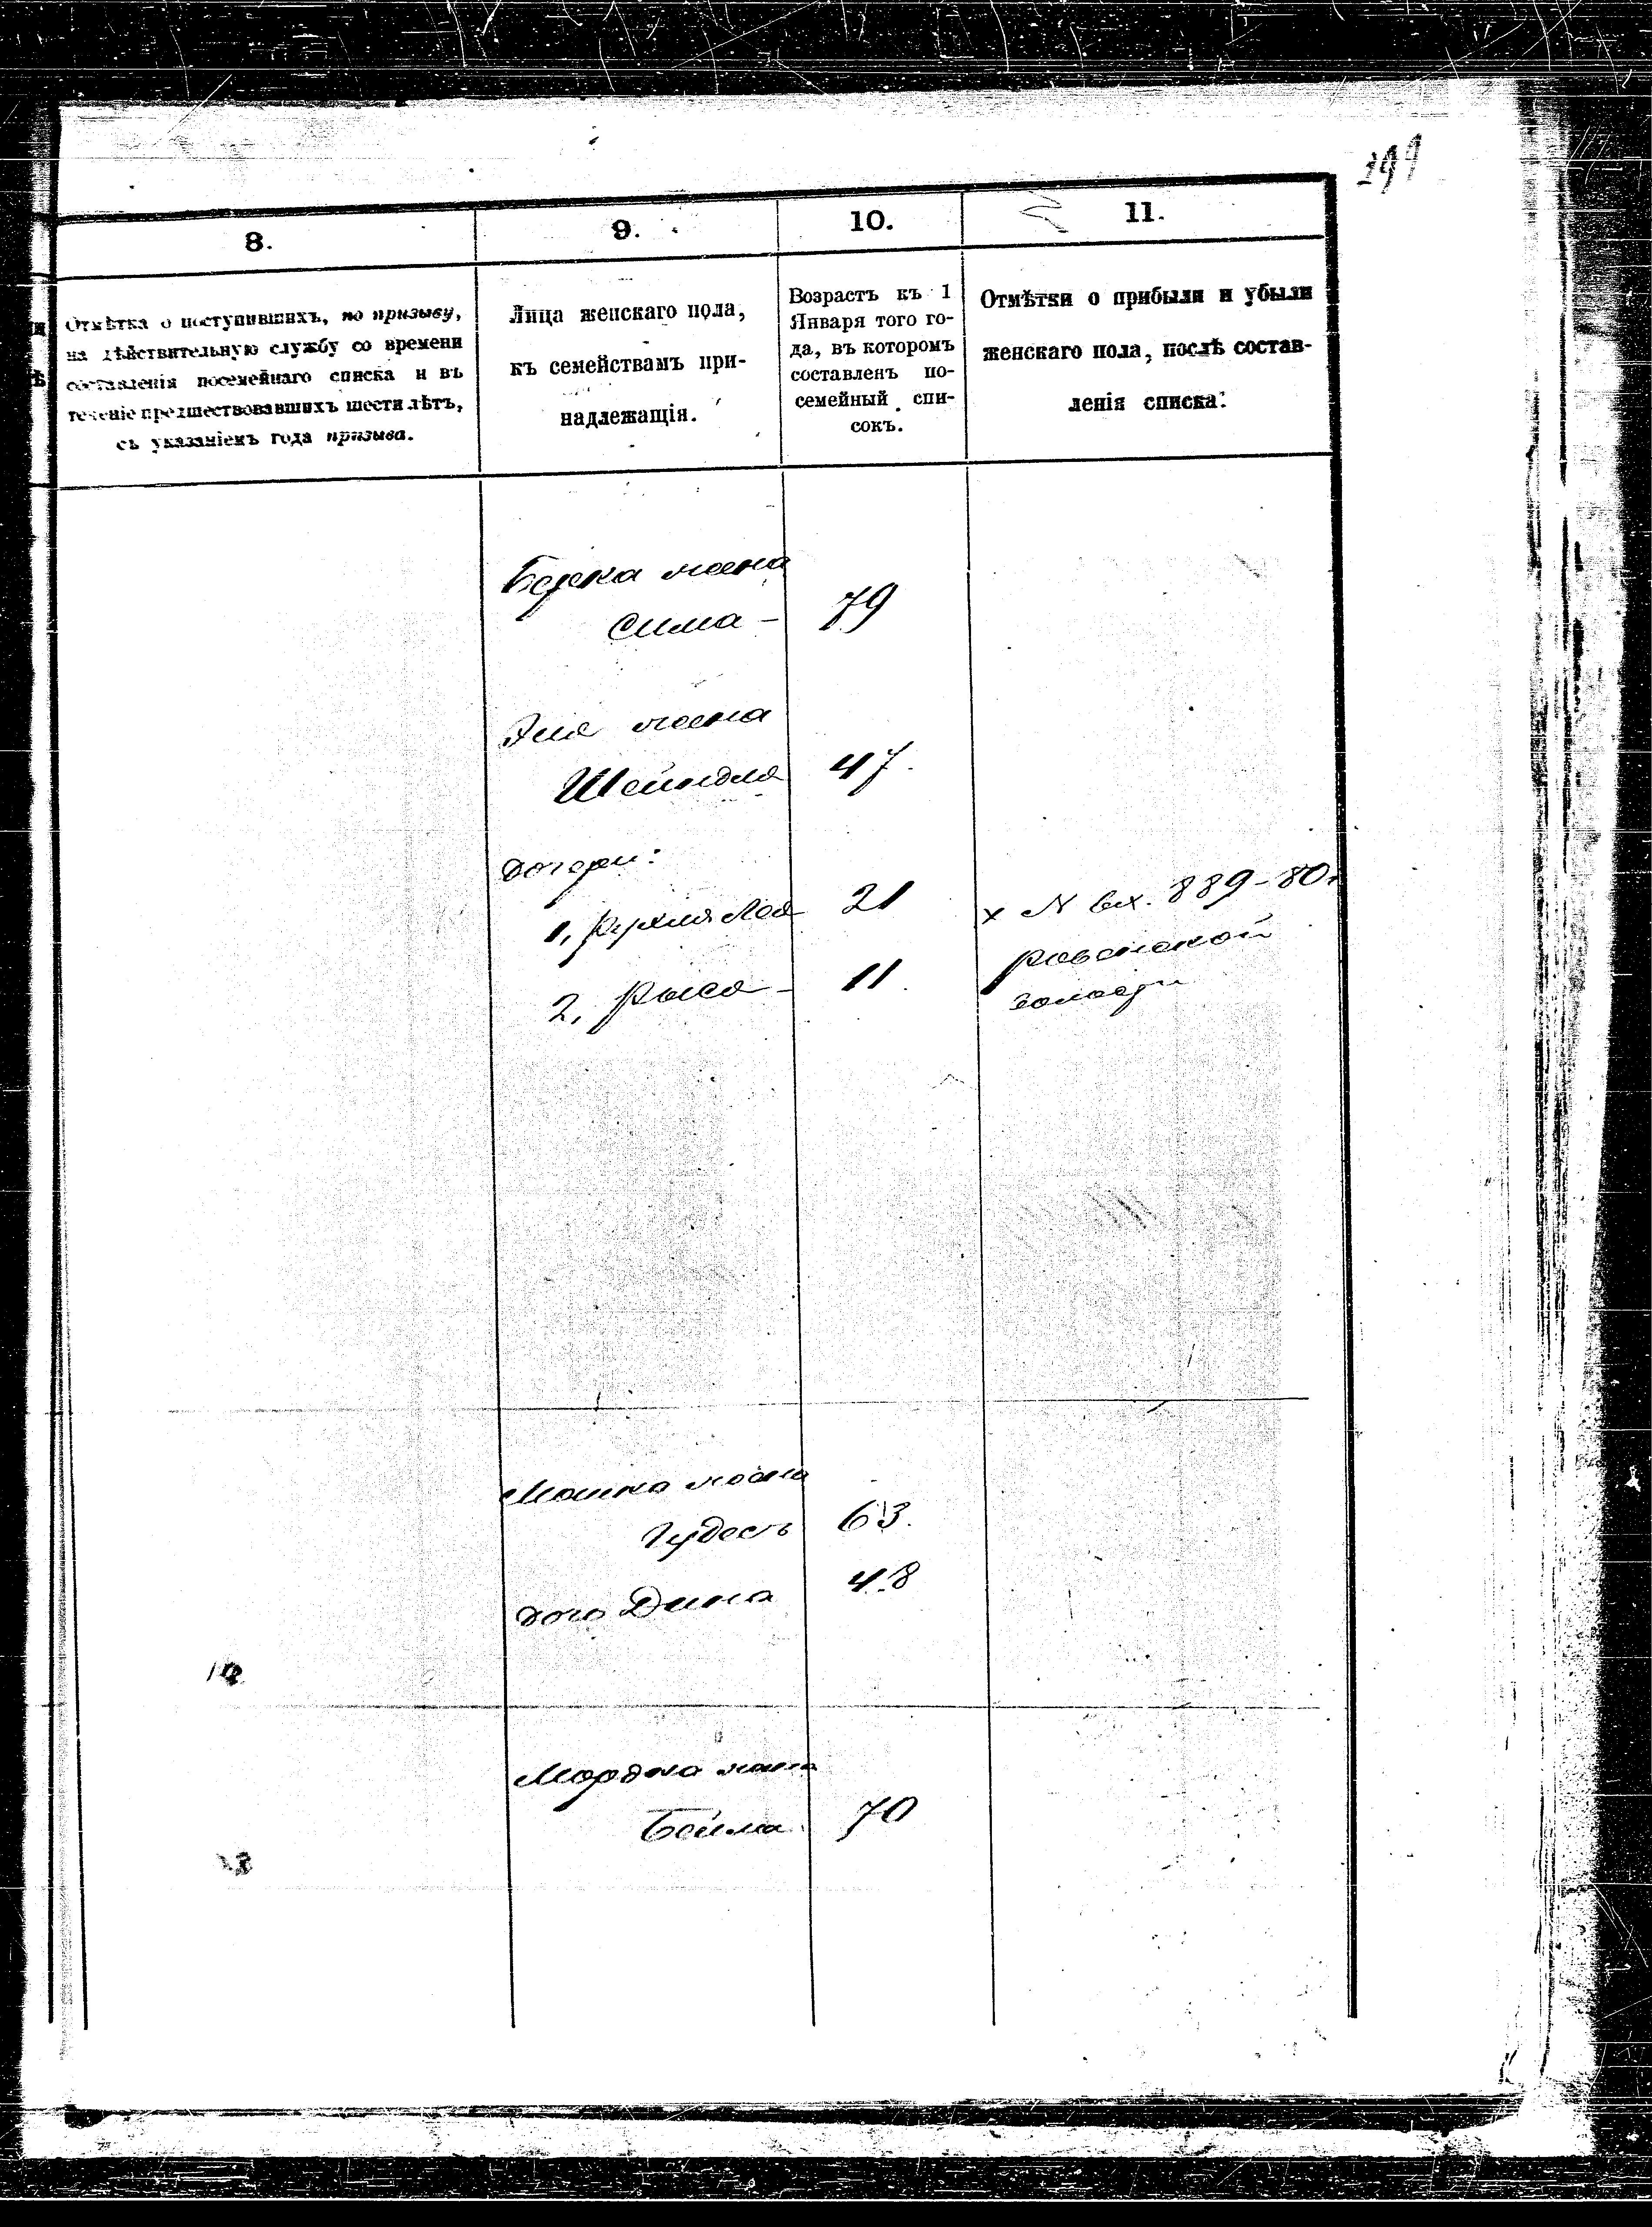 199
8.
9.
10.
11.
Отмѣтка о поступившихъ, по призыву,
на дѣйствительную службу со времени
составленія посемейнаго списка и въ
теченіе предшествовавшихъ шести лѣтъ,
съ указаніемъ года призыва.
Лица женскаго пола,
къ семействамъ при-
надлежащія.
Возрастъ къ 1
Января того го-
да, въ которомъ
составленъ по-
семейный спи-
сокъ.
Отмѣтки о прибыли и убыли
женскаго пола, послѣ состав-
ленія списка.
Берка жена
Сима - 79
Эля жена
Шейндля 47.
дочери:
1, Рухля Лея 21
х N вх. 889-80г
2, Рыся - 11.
Мошка жена
Гудесъ 63.
дочь Дина 48
Мордка жена
Бейла 70